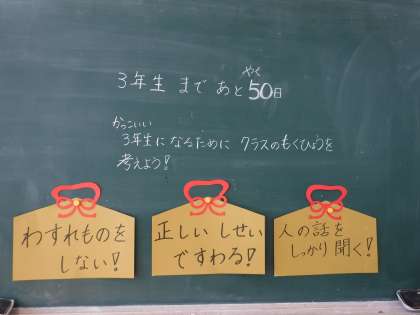 3年生 まで あと 50日
やく
かっこいい
3年生に なるために クラスのもくひょうを
考えよう!
わすれものを
しない!
正しい しせい
ですわる!
人の話を
しっかり 聞く!